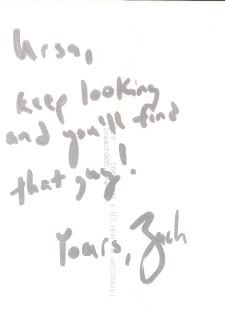 Ursa,
keep looking
and you'll find
that guy!
Yours, Zach